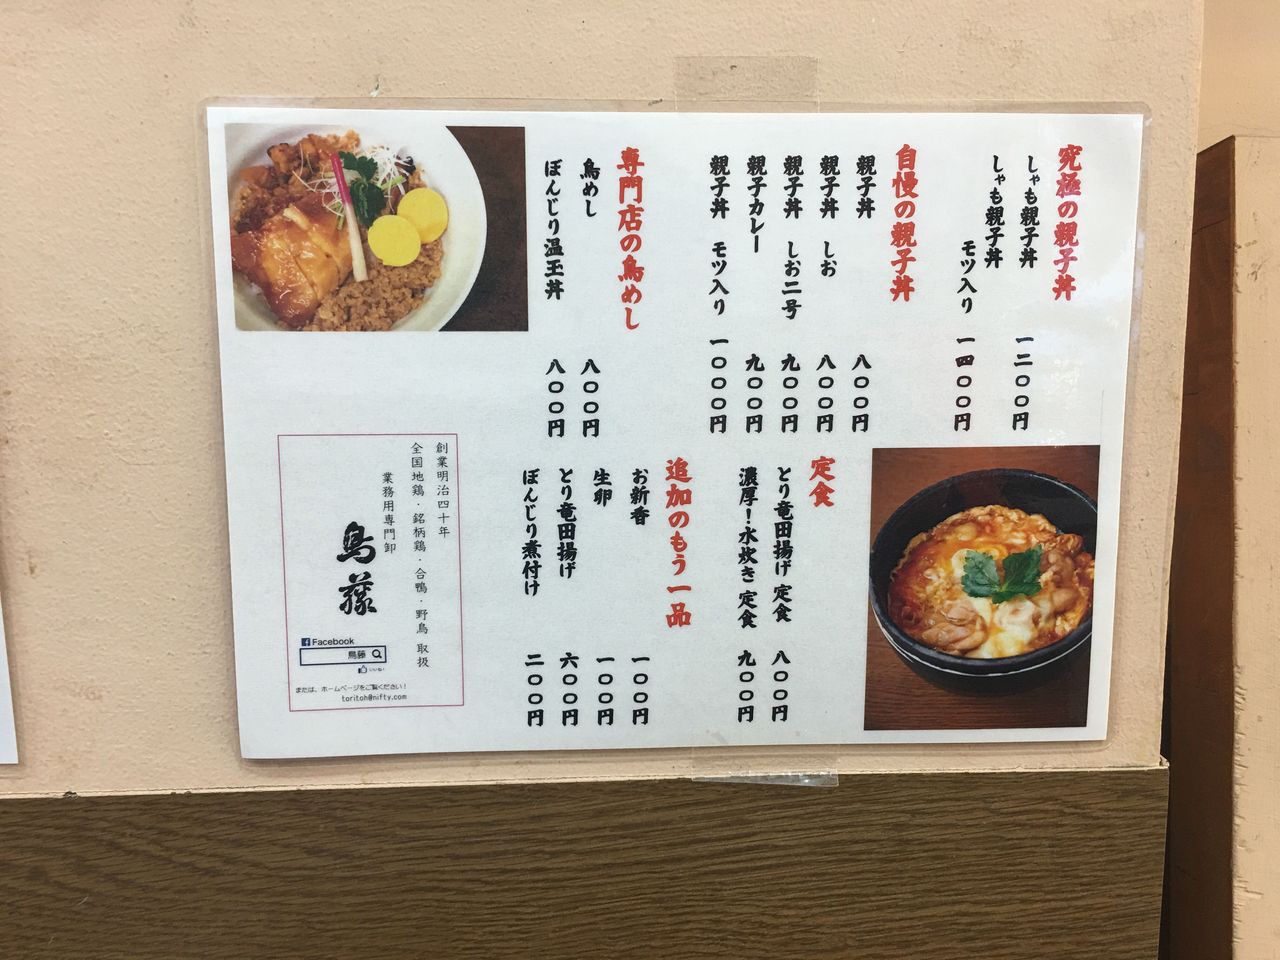 究極の親子丼
しゃも親子丼 一二〇〇円
しゃも親子丼
モツ入り 一四〇〇円
自慢の親子丼
親子丼 八〇〇円
親子丼 しお 八〇〇円
親子丼 しお二号 九〇〇円
親子カレー 九〇〇円
親子丼 モツ入り 一〇〇〇円
専門店の鳥めし
鳥めし 八〇〇円
ぼんじり温玉丼 八〇〇円
定食
とり竜田揚げ 定食 八〇〇円
濃厚!水炊き 定食 九〇〇円
追加のもう一品
お新香 一〇〇円
生卵 一〇〇円
とり竜田揚げ 六〇〇円
ぼんじり煮付け 二〇〇円
創業明治四十年
全国地鶏・銘柄鶏・合鴨・野鳥 取扱
業務用専門卸
鳥藤
Facebook
鳥藤
いいね!
または、ホームページをご覧ください!
toritoh@nifty.com